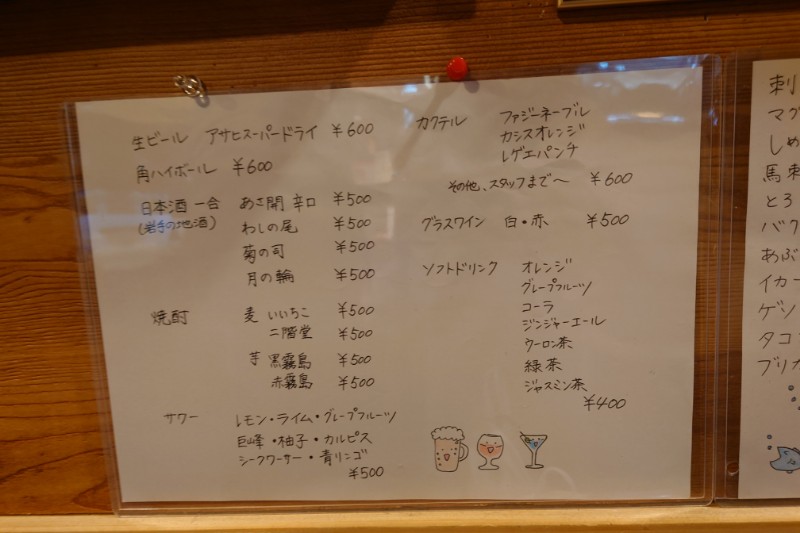 生ビール アサヒスーパードライ ¥600
角ハイボール ¥600
日本酒 一合 あさ開 辛口 ¥500
(岩手の地酒) わしの尾 ¥500
菊の司 ¥500
月の輪 ¥500
焼酎 麦 いいちこ ¥500
二階堂 ¥500
芋 黒霧島 ¥500
赤霧島 ¥500
サワー レモン・ライム・グレープフルーツ
巨峰・柚子・カルピス
シークワーサー・青リンゴ
¥500
カクテル ファジーネーブル
カシスオレンジ
レゲエパンチ
その他、スタッフまで〜 ¥600
グラスワイン 白・赤 ¥500
ソフトドリンク オレンジ
グレープフルーツ
コーラ
ジンジャーエール
ウーロン茶
緑茶
ジャスミン茶
¥400
刺
マグ
しめ
馬刺
とろ
バク
あぶ
イカ
ゲソ
タコ
ブリカ